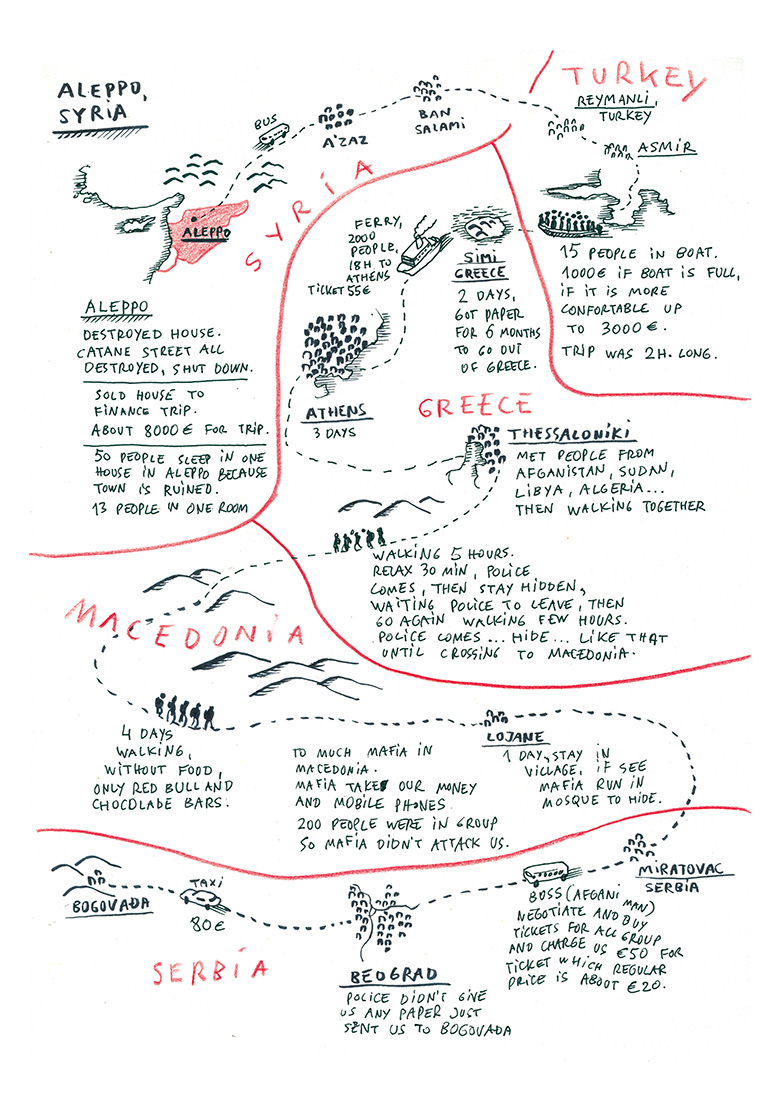 ALEPPO,
SYRIA
BUS
A'ZAZ
BAN
SALAMI
TURKEY
REYMANLI,
TURKEY
ASMIR
ALEPPO
SYRIA
FERRY,
2000
PEOPLE,
18H TO
ATHENS
TICKET 55€
SIMI
GREECE
2 DAYS,
GOT PAPER
FOR 6 MONTHS
TO GO OUT
OF GREECE.
15 PEOPLE IN BOAT.
1000€ IF BOAT IS FULL,
IF IT IS MORE
CONFORTABLE UP
TO 3000 €.
TRIP WAS 2H. LONG.
ALEPPO
DESTROYED HOUSE.
CATANE STREET ALL
DESTROYED, SHUT DOWN.
SOLD HOUSE TO
FINANCE TRIP.
ABOUT 8000€ FOR TRIP.
50 PEOPLE SLEEP IN ONE
HOUSE IN ALEPPO BECAUSE
TOWN IS RUINED.
13 PEOPLE IN ONE ROOM
ATHENS
3 DAYS
GREECE
THESSALONIKI
MET PEOPLE FROM
AFGANISTAN, SUDAN,
LIBYA, ALGERIA...
THEN WALKING TOGETHER
WALKING 5 HOURS.
RELAX 30 MIN, POLICE
COMES, THEN STAY HIDDEN,
WAITING POLICE TO LEAVE, THEN
GO AGAIN WALKING FEW HOURS.
POLICE COMES... HIDE... LIKE THAT
UNTIL CROSSING TO MACEDONIA.
MACEDONIA
4 DAYS
WALKING,
WITHOUT FOOD,
ONLY RED BULL AND
CHOCOLADE BARS.
TO MUCH MAFIA IN
MACEDONIA.
MAFIA TAKES OUR MONEY
AND MOBILE PHONES
200 PEOPLE WERE IN GROUP
SO MAFIA DIDN'T ATTACK US.
LOJANE
1 DAY, STAY IN
VILLAGE, IF SEE
MAFIA RUN IN
MOSQUE TO HIDE.
MIRATOVAC
SERBIA
BOSS (AFGANI MAN)
NEGOTIATE AND BUY
TICKETS FOR ALL GROUP
AND CHARGE US €50 FOR
TICKET WHICH REGULAR
PRICE IS ABOUT €20.
BOGOVAĐA
TAXI
80€
SERBIA
BEOGRAD
POLICE DIDN'T GIVE
US ANY PAPER JUST
SENT US TO BOGOVAĐA